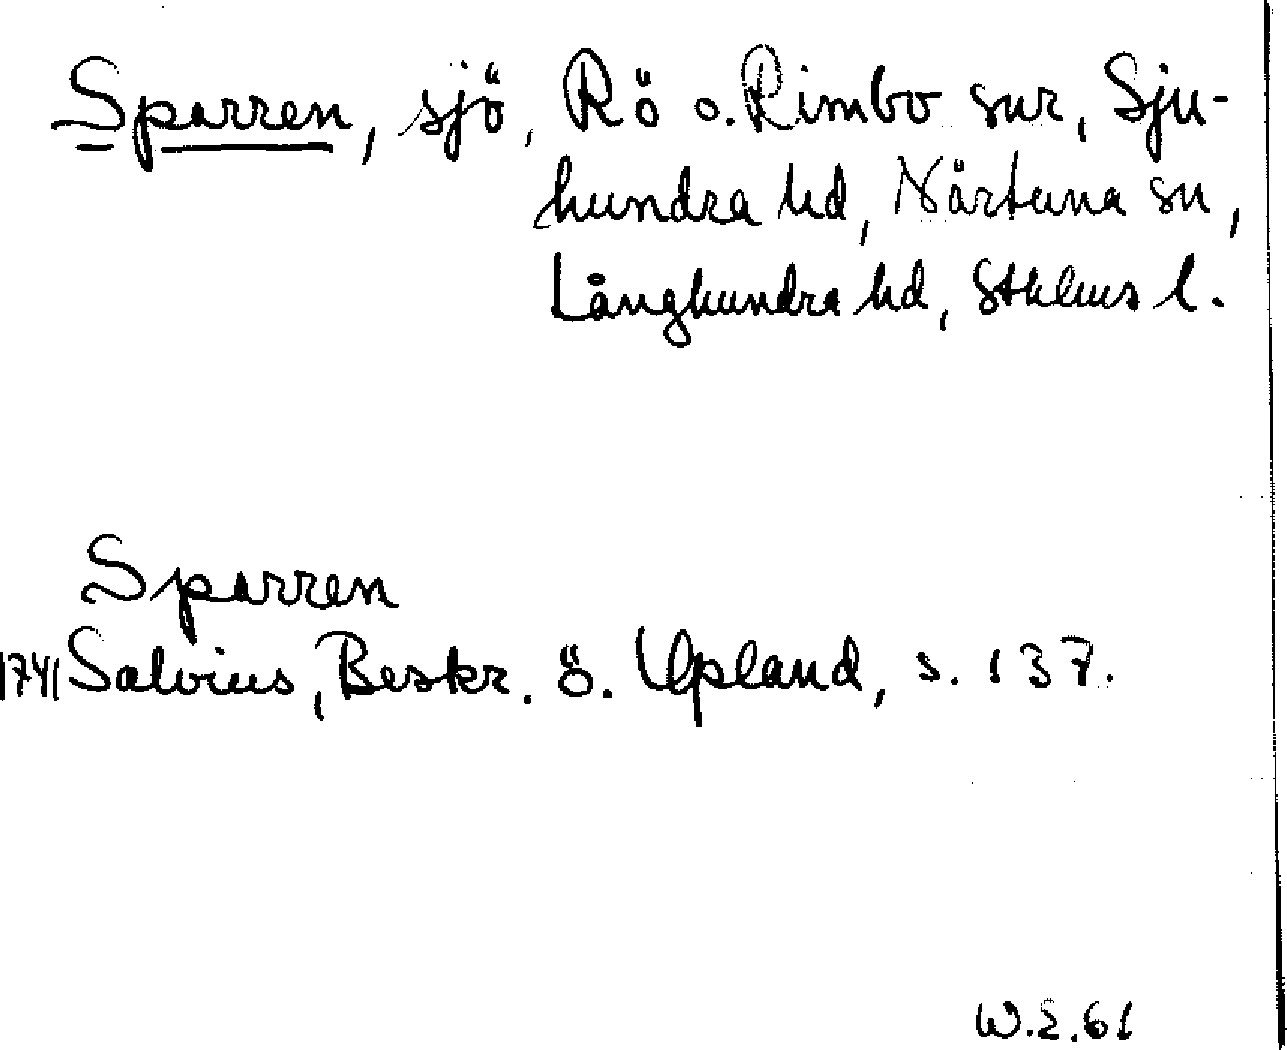 Sparren, sjö, Rö o. Rimbo snr, Sju-
hundra hd, Närtuna sn,
Långhundra hd, Sthlms l.
Sparren
1741 Salvius, Beskr. ö. Upland, s. 137.
W.E.61